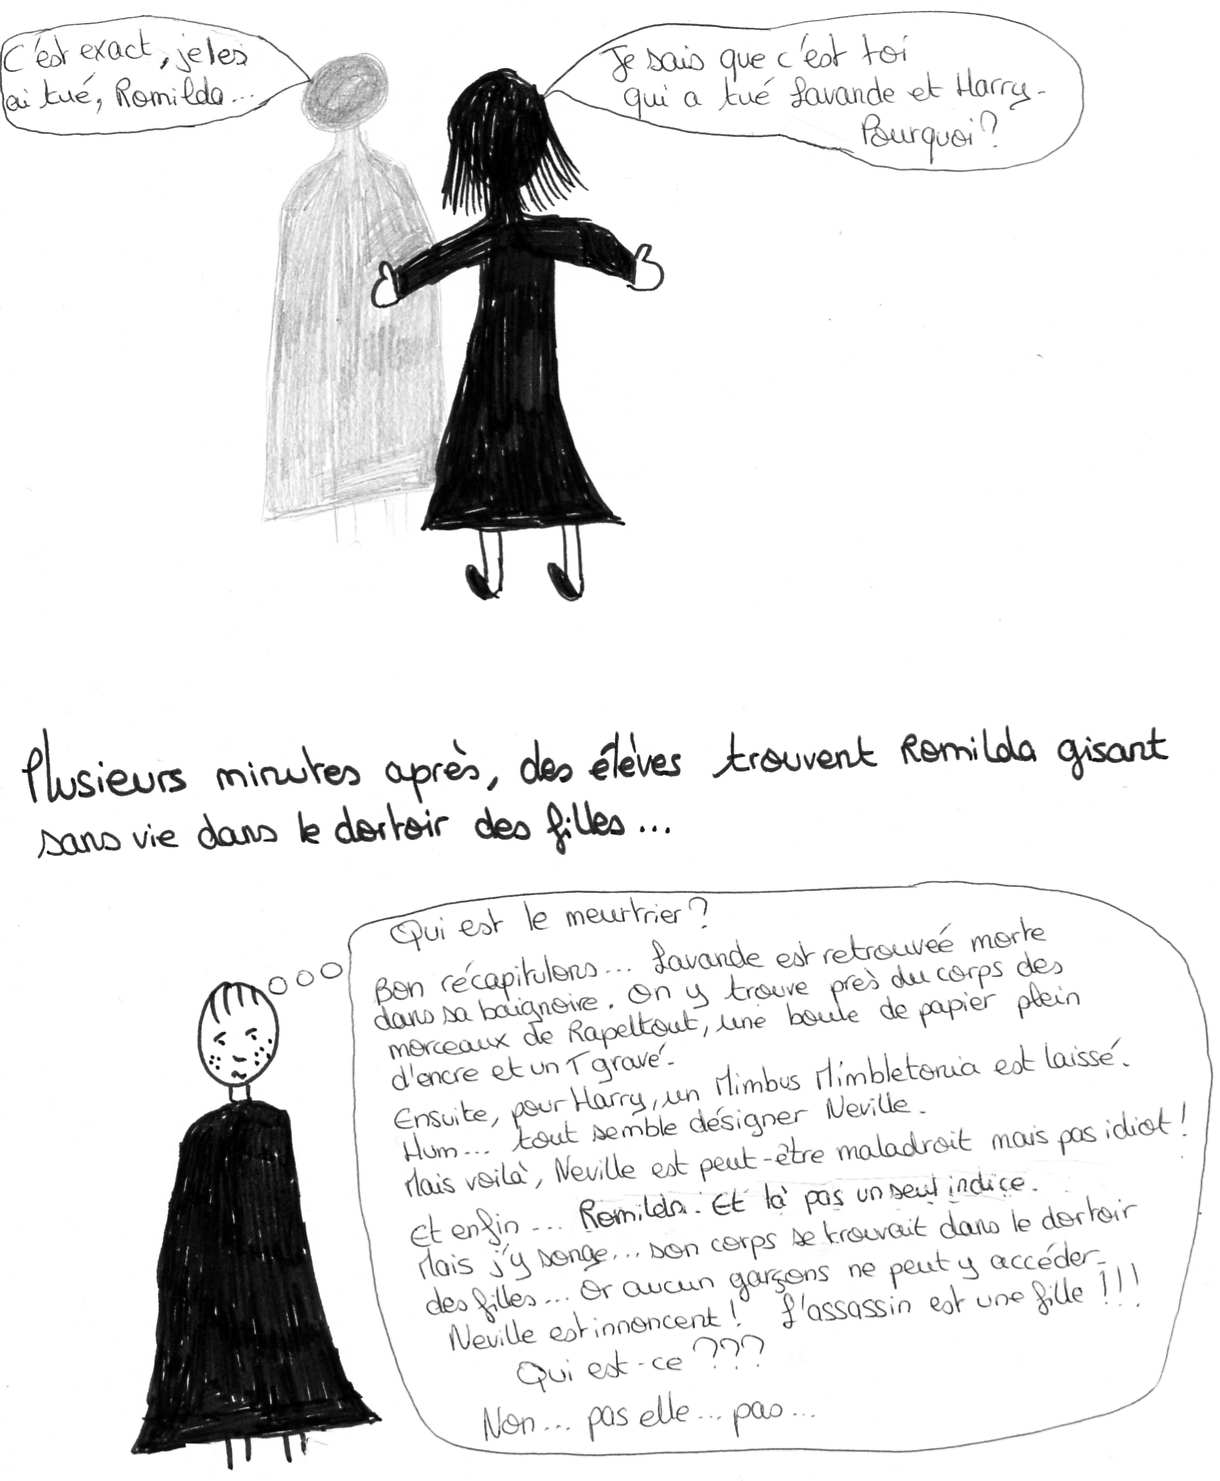 C'est exact, je les
ai tué, Romilda...
Je sais que c'est toi
qui a tué Lavande et Harry.
Pourquoi?
Plusieurs minutes après, des élèves trouvent Romilda gisant
sans vie dans le dortoir des filles...
Qui est le meurtrier?
Bon récapitulons... Lavande est retrouvéé morte
dans sa baignoire. On y trouve près du corps des
morceaux de Rapeltout, une boule de papier plein
d'encre et un T gravé.
Ensuite, pour Harry, un Mimbus Mimbletonia est laissé.
Hum... tout semble désigner Neville.
Mais voilà, Neville est peut-être maladroit mais pas idiot!
Et enfin... Romilda. Et là pas un seul indice.
Mais j'y songe... son corps se trouvait dans le dortoir
des filles... Or aucun garçons ne peut y accéder.
Neville est innoncent! L'assassin est une fille!!!
Qui est-ce ???
Non... pas elle... pas...